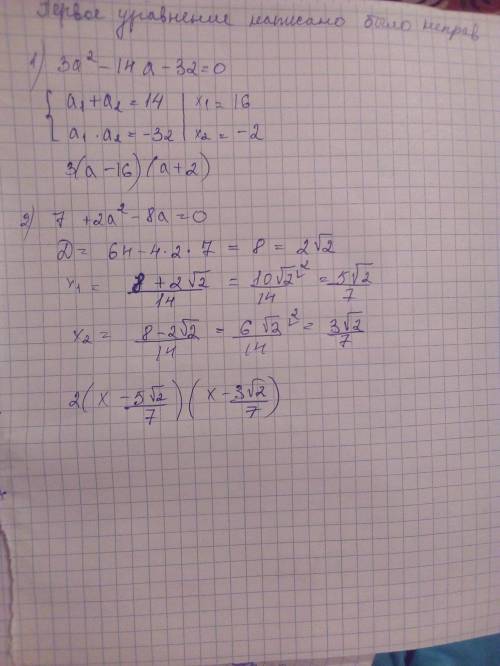 Первое уравнение написано было неправ
1) 3a² - 14a - 32 = 0
{ a₁ + a₂ = 14 | x₁ = 16
a₁ · a₂ = -32 | x₂ = -2
3(a - 16)(a + 2)
2) 7 + 2a² - 8a = 0
D = 64 - 4 · 2 · 7 = 8 = 2√2
x₁ = (8 + 2√2)/14 = 10√2/14 ² = 5√2/7
x₂ = (8 - 2√2)/14 = 6√2/14 ² = 3√2/7
2(x - 5√2/7)(x - 3√2/7)